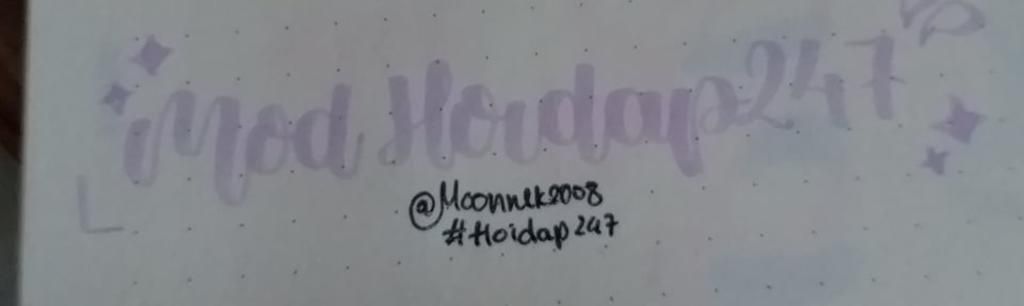 Mod Hoidap247
@Moonnek2008
#Hoidap247